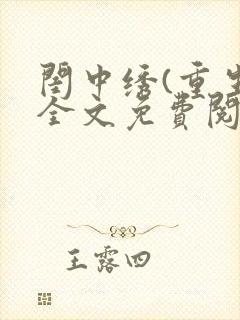 閨中绣(重生
全文免費閱
王露四